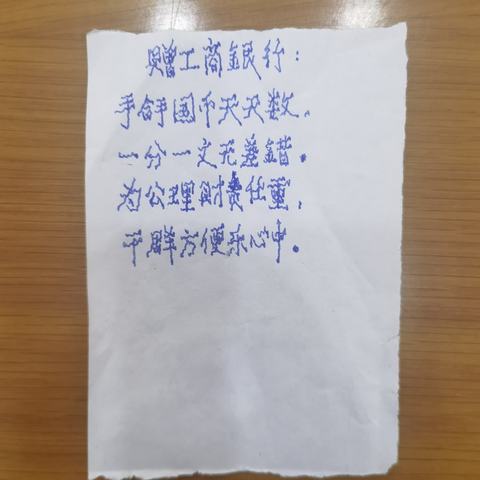 赠工商銀行：
手拿國币天天数，
一分一文无差錯。
为公理财责任重，
干群方便乐心中。